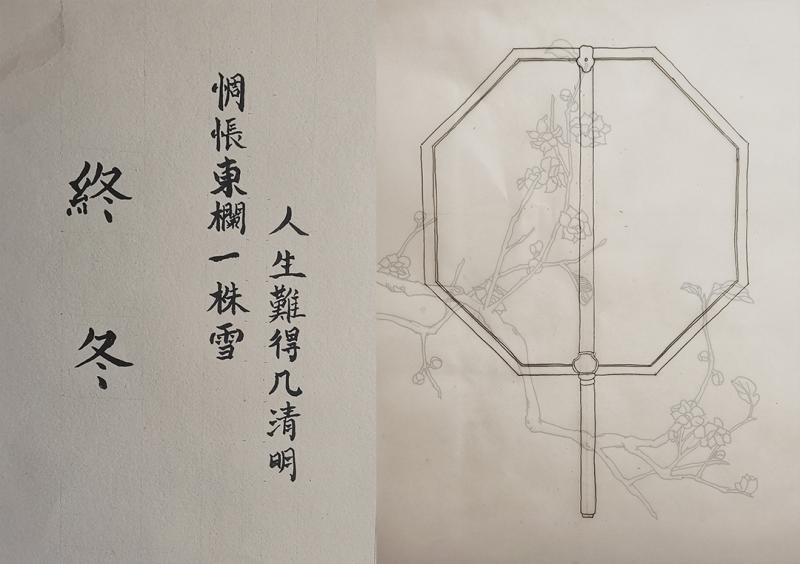 人生難得几清明
惆悵東欄一株雪
終冬